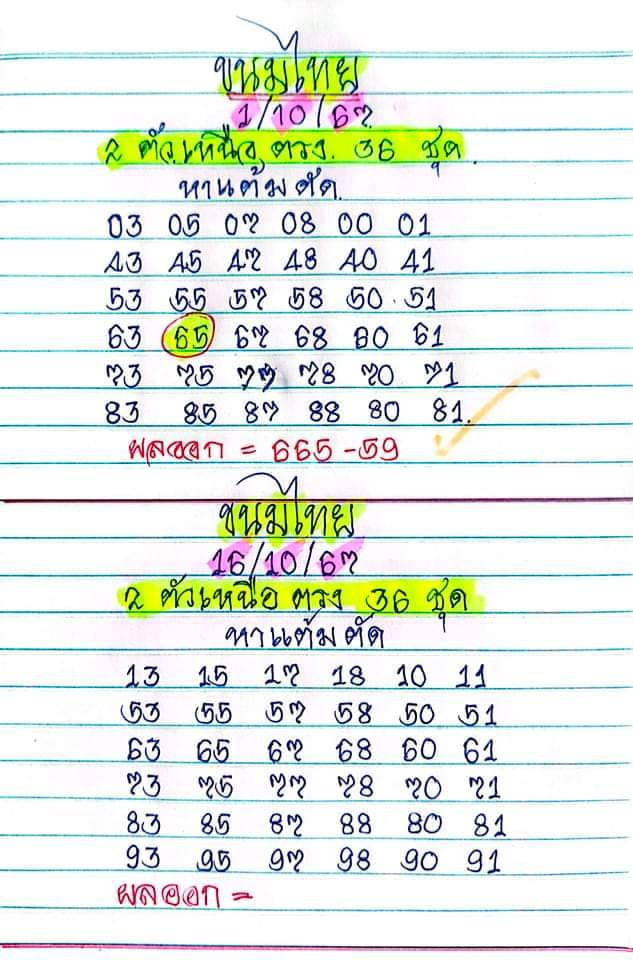 ขนมไทย
1/10/67
2 ตัวเหนือ ตรง. 36 ชุด.
หาแต้มตัด
03 05 07 08 00 01
43 45 47 48 40 41
53 55 57 58 50 51
63 65 67 68 60 61
73 75 77 78 70 71
83 85 87 88 80 81.
ผลออก = 665-59
ขนมไทย
16/10/67
2 ตัวเหนือ ตรง 36 ชุด
หาแต้มตัด
13 15 17 18 10 11
53 55 57 58 50 51
63 65 67 68 60 61
73 75 77 78 70 71
83 85 87 88 80 81
93 95 97 98 90 91
ผลออก =